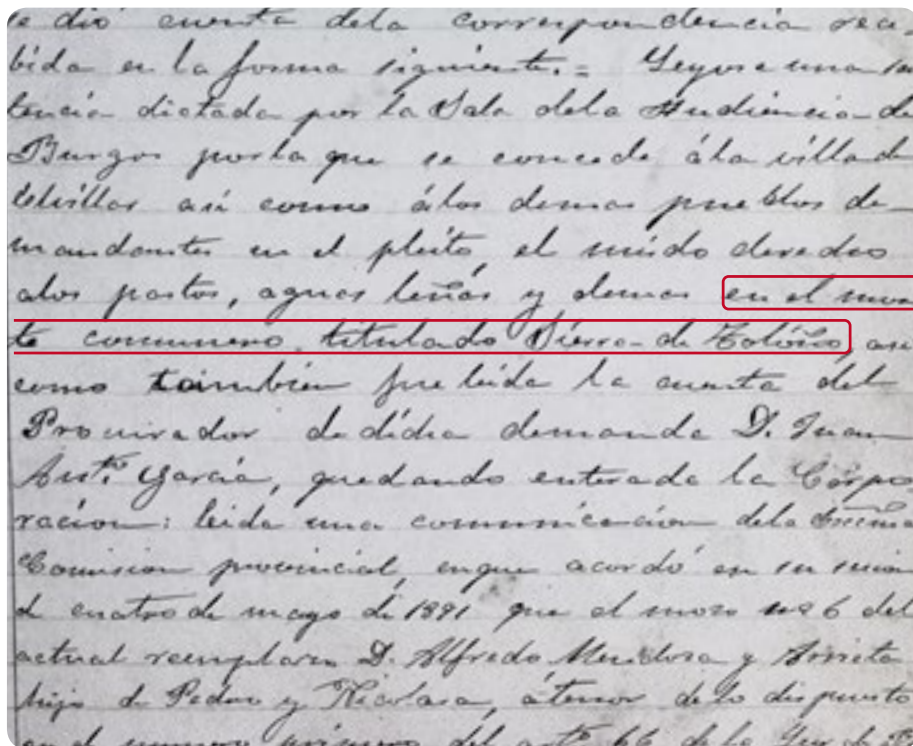 se dió cuenta dela correspondencia reci-
bida en la forma siguiente. = Leyose una sen
tencia dictada por la Sala dela Audiencia de
Burgos porla que se concede ála villa de
delvillar asi como álos demas pueblos de-
mandantes en el pleito, el mismo derecho
alos pastos, aguas leñas y demas en el mon
te comunero titulado Sierra de Toloño, asi
como tambien fue leida la cuenta del
Procurador de dicha demanda D. Juan
Antº. Garcia, quedando enterada la Corpo
racion: leida una comunicacion dela
Comision provincial, en que acordó en su sesion
d cuatro de mayo de 1891 que el mozo nº 6 del
actual reemplazo D. Alfredo Mendoza y Arrieta
hijo de Pedro y Nicolasa, á tenor delo dispuesto
en el numero primero del artº 66 dela Ley de